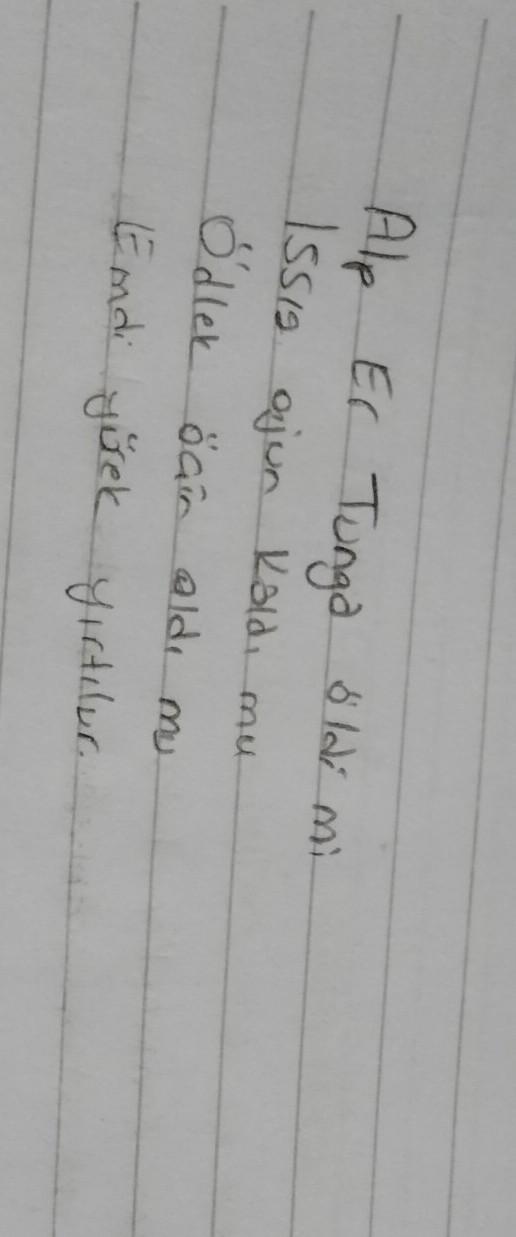 Alp Er Tunga öldi mi
Issıg ajun kaldı mu
Ödlek öcin aldı mu
Emdi yürek yırtılur.